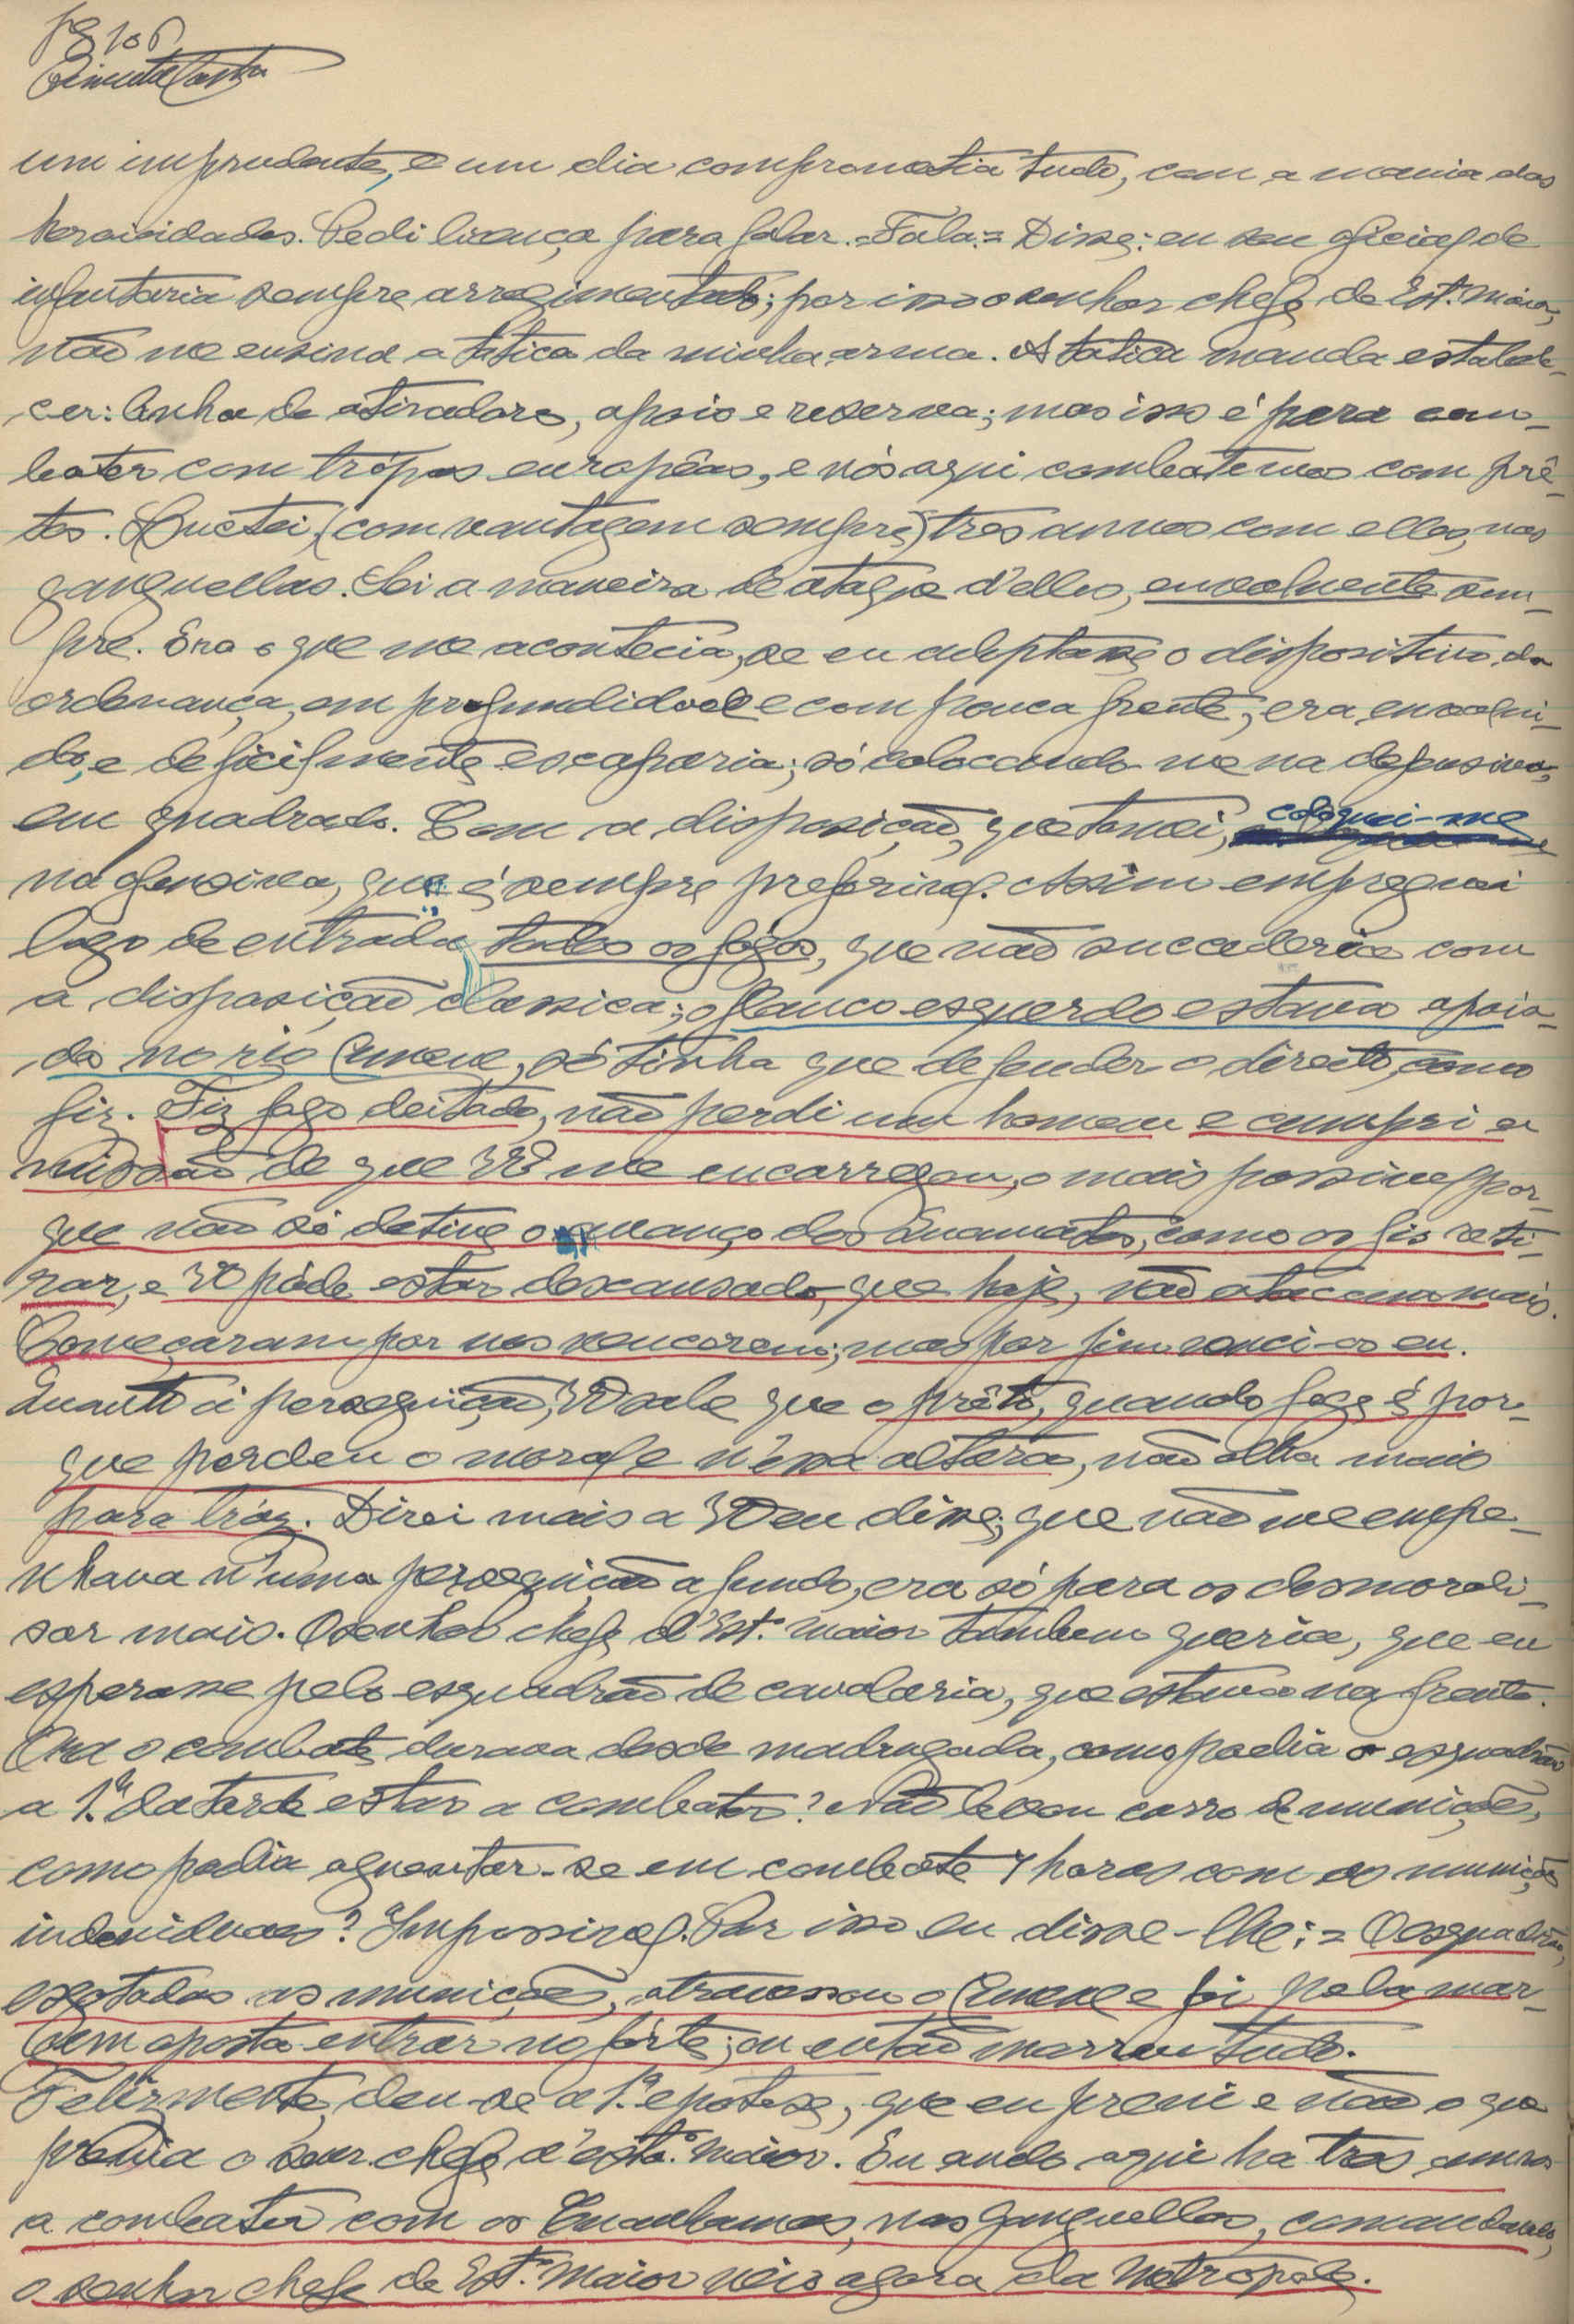 fg 106
Pimenta Castro
um imprudente, e um dia compromettia tudo, com a mania das
heroicidades. Pedi licença para falar. = Fala = Disse: eu sou oficial de
infantaria sempre arregimentado; por isso o senhor chefe de Est.º Maior,
não me ensina a tatica da minha arma. A tatica manda estabele-
cer: linha de atiradores, apoio e reserva; mas isso é para com-
bater com trópas européas, e nós aqui combatemos com prê-
tos. Luctei, (com vantagem sempre) tres annos com elles, nas
ganguellas. Sei a maneira de ataque d'elles, envolvente sem-
pre. Era o que me acontecia, se eu adeptasse o dispositivo da
ordenança, em profundidade e com pouca frente; era envolvi-
do, e deficilmente escaparia; só colocando-me na defensiva,
em quadrado. Com a disposição, que tomei, coloquei-me
na ofensiva, que é sempre preferivel. Assim empreguei
logo de entrada todos os fógos, que não succederia com
a disposição classica; o flanco esquerdo estava apoia-
do no rio Cunene, só tinha que defender o direito, como
fiz. Fiz fogo deitado, não perdi um homem e cumpri a
missão de que V.E me encarregou, o mais possivel por-
que não só detive o avanço dos Cuamatos, como os fis reti-
rar, e V.E póde estar descansado, que hoje, não atacam mais.
Começaram por nos vencerem; mas por fim venci-os eu.
Quanto á perseguição, V.E sabe que o prêto, quando foge é por-
que perdeu o moral e n'essa altura, não olha mais
para tráz. Direi mais a V.E eu disse; que não me empe-
nhava n'uma perseguição a fundo, era só para os desmorali-
sar mais. O senhor chefe d'Est.º Maior tambem queria, que eu
esperasse pelo esquadrão de cavalaria, que estava na frente.
Ora o combate durava desde madrugada, como podia o esquadrão
a 1.ª da tarde estar a combater? Não levou carro de munições,
como podia aguentar-se em combate 7 horas com as munições
individuaes? Impossivel. Por isso eu disse-lhe: = O esquadrão,
esgotadas as munições, atravessou o Cunene e foi pela mar-
gem oposta entrar no fórte; ou então morreu tudo.
Felizmente, deu-se a 1.ª epotese, que eu previ e não o que
previa o senr. chefe d'esta.º Maior. Eu ando aqui ha tres annos
a combater com os Cuanhamas, nas ganguellas, comandando,
o senhor chefe de Est.º Maior veio agora da Metropole.